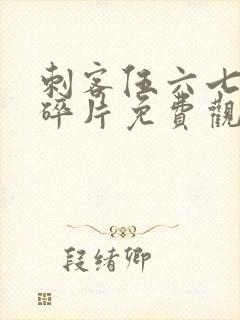 刺客伍六七
碎片免費觀
段绪卿